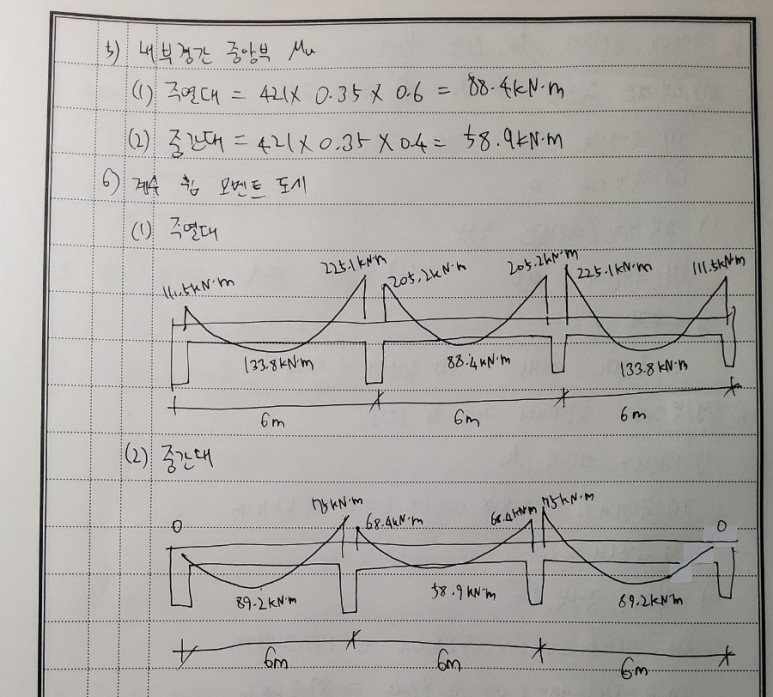 5) 내부경간 중앙부 Mu
(1) 주열대 = 421 × 0.35 × 0.6 = 88.4kN·m
(2) 중간대 = 421 × 0.35 × 0.4 = 58.9kN·m
6) 계수 휨 모멘트 도시
(1) 주열대
111.5kN·m 225.1kN·m 205.2kN·m 205.2kN·m 225.1kN·m 111.5kN·m
133.8kN·m 88.4kN·m 133.8kN·m
6m 6m 6m
(2) 중간대
0 75kN·m 68.4kN·m 68.4kN·m 75kN·m 0
89.2kN·m 58.9kN·m 89.2kN·m
6m 6m 6m